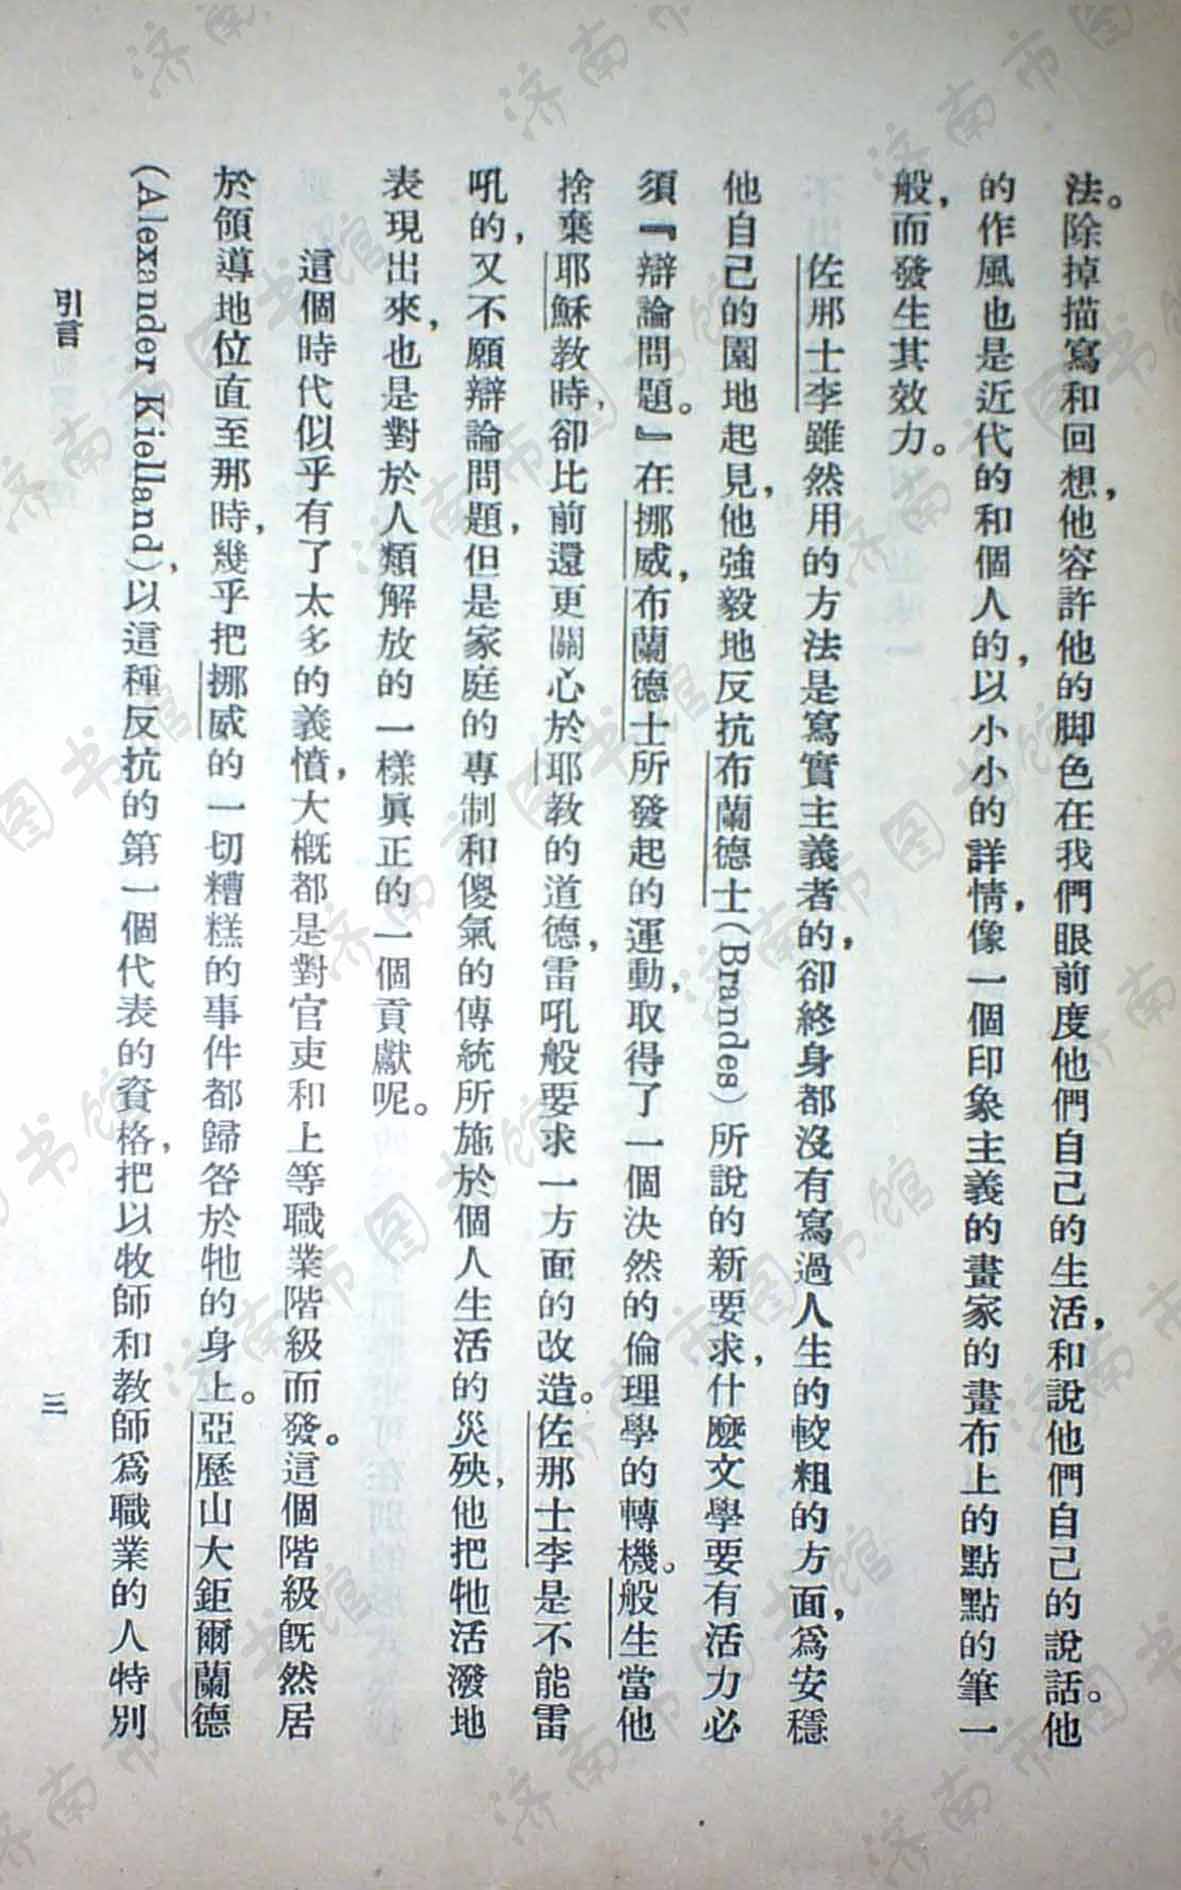 法。除掉描寫和回想，他容許他的脚色在我們眼前度他們自己的生活，和說他們自己的說話。他
的作風也是近代的和個人的，以小小的詳情，像一個印象主義的畫家的畫布上的點點的筆一
般，而發生其效力。
佐那士李雖然用的方法是寫實主義者的，卻終身都沒有寫過人生的較粗的方面，爲安穩
他自己的園地起見，他強毅地反抗布蘭德士（Brandes）所說的新要求，什麼文學要有活力必
須『辯論問題。』在挪威，布蘭德士所發起的運動，取得了一個決然的倫理學的轉機。般生當他
捨棄耶穌教時，卻比前還更關心於耶教的道德，雷吼般要求一方面的改造。佐那士李是不能雷
吼的，又不願辯論問題，但是家庭的專制和傻氣的傳統所施於個人生活的災殃，他把牠活潑地
表現出來，也是對於人類解放的一樣眞正的一個貢獻呢。
這個時代似乎有了太多的義憤，大槪都是對官吏和上等職業階級而發。這個階級旣然居
於領導地位直至那時，幾乎把挪威的一切糟糕的事件都歸咎於牠的身上。亞歷山大鉅爾蘭德
（Alexander Kielland），以這種反抗的第一個代表的資格，把以牧師和教師爲職業的人特別
引言
三
济南市图书馆